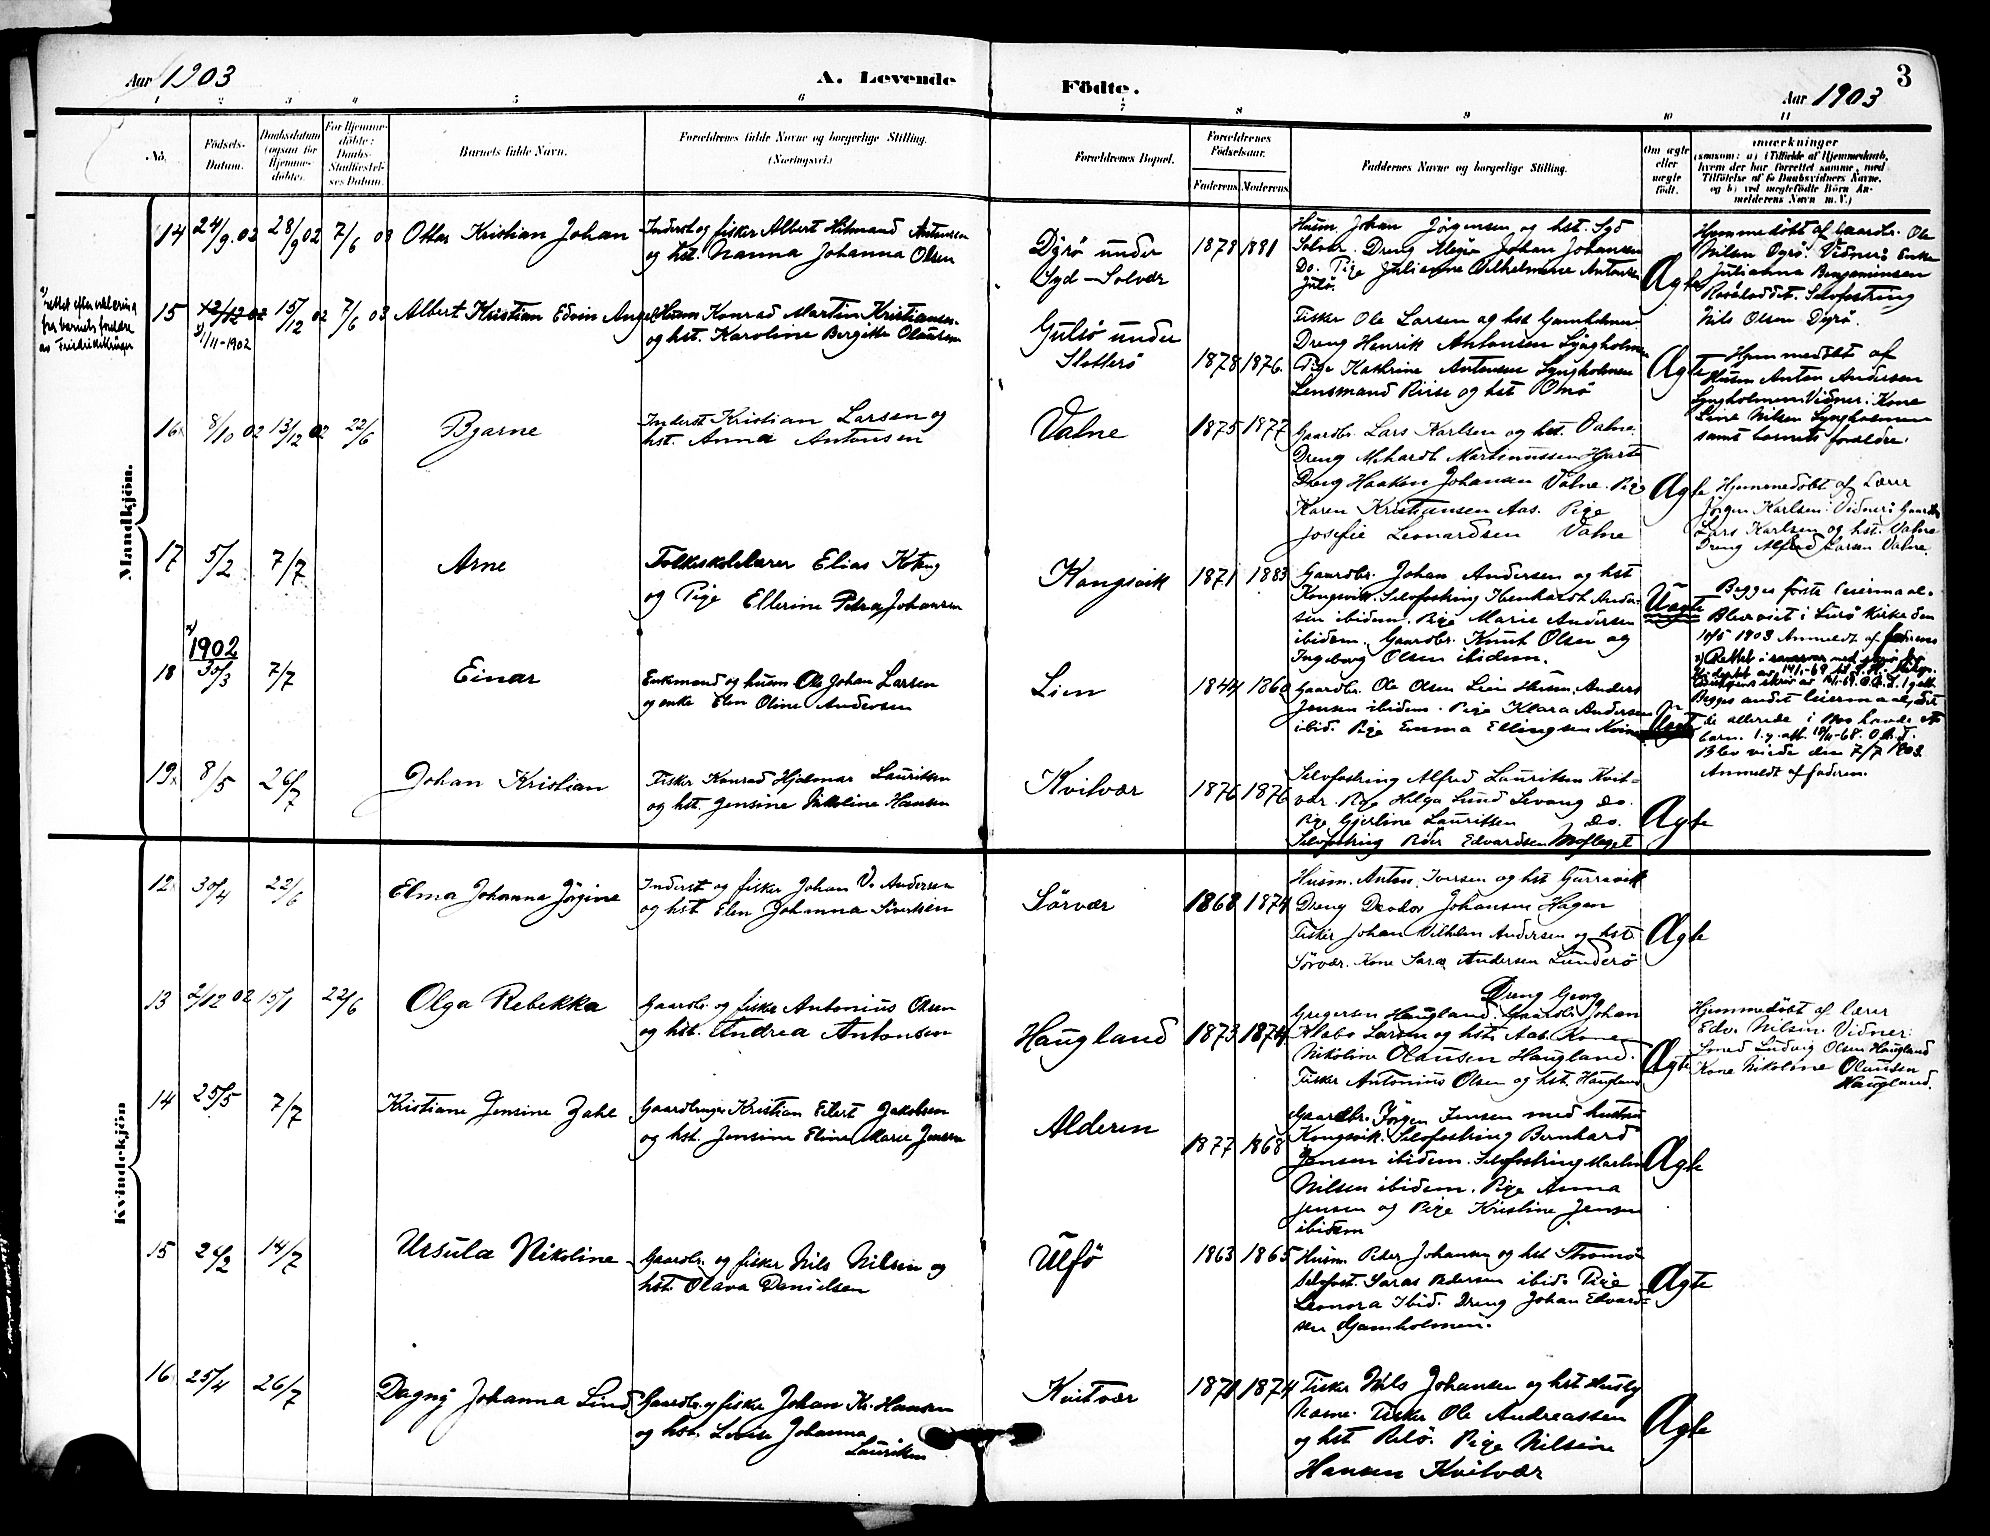 Aar 1903
A. Levende
Födte.
3
Aar 1903
1 2 3 4 5 6 7 8 9 10 11
No.
Födsels-
Datum.
Daabsdatum
(ogsaa for
Hjemme-
döbte).
For Hjemme-
döbte:
Daabs-
Stadfæstel-
ses Datum.
Barnets fulde Navn.
Forældrenes fulde Navne og borgerlige Stilling.
(Næringsvei.)
Forældrenes Bopæl.
Forældrenes
Födselsaar.
Faderens Moderens
Faddernes Navne og borgerlige Stilling.
Om ægte
eller
uægte
födt.
Anmærkninger
(saasom: a) i Tilfælde af Hjemmedaab,
hvem der har forrettet samme, med
Tilföielse af to Daabsvidners Navne,
og b) ved uægtefödte Börn An-
melderens Navn m. V.)
Mandkjön.
14 24/9.02 28/9 02 7/6 03 Otter Kristian Johan
Inderst og fisker Albert Hilmand Antonsen
og hst. Nanna Johanna Olsen
Dyrø under
Syd-Solvær
1878 1881
Husm. Johan Jørgensen og hst. Syd
Solvær. Dreng Meyer Johan Johansen
Do. Pige Julianne Vilhelmine Antonsen
Ægte
Hjemmedøbt af Gaardbr. Ole
Nilsen Dyrø. Vidner: Enke
Julianna Benjaminsen
Selvfostring
Nils Olsen Dyrø.
rettet efter erklæring
fra barnets foreldre
15 12/12 02 15/12 02 7/6 03 Albert Kristian Edvin Ange
x) 1/11-1902
Husm Konrad Martin Kristiansen
og hst. Karoline Bergitte Olausen
Gulsø under
Slotterø
1878 1876.
Fisker Ole Larsen og hst Gamholmen
Dreng Henrik Antonsen Lyngholmen
Pige Kathrine Antonsen Lyngholmen
Lensmand Riise og hst Onø
Ægte
Hjemmedøbt af
Husm Anton Andersen
Lyngholmen Vidner: Kone
Line Nilsen Lyngholmen
samt barnets foreldre.
16 8/10 02 13/12 02 22/6 Bjarne
Inderst Kristian Larsen og
hst. Anna Antonsen
Valne
1875 1877
Gaardbr. Lars Karlsen og hst. Valne.
Dreng Mehardt Martinussen Hjarte
Dreng Haakon Johansen Valne. Pige
Karen Kristiansen Aas. Pige
Josefie Leonardsen Valne
Ægte
Hjemmedøbt af Lærer
Jørgen Karlsen. Vidner: Gaardbr
Lars Karlsen og hst. Valne
Dreng Alfred Larsen Valne.
17 5/2 7/7 Arne
Folkeskolelærer Elias Koteng
og Pige Ellerine Petra Johansen
Kongsvik
1871 1883
Gaardbr. Johan Andersen og hst
Kongsvik. Selvfostring Ikenhardt Ander-
sen ibidem. Pige Marie Andersen
ibidem. Gaardbr. Knut Olsen og
Ingeborg Olsen ibidem.
Uægte
Begges første leiermaal.
Blev viet i Lurø Kirke den
10/5 1903 Anmeldt af faderen
x)
1902
18 30/3 7/7 Einar
Enkemand og husm. Ole Johan Larsen
og enke Elen Oline Andersen
Lien
1844 1860
Gaardbr. Ole Olsen Lien Husm. Anders
Jensen ibidem. Pige Klara Andersen
ibid. Pige Emma Ellingsen Kvina
Uægt
x) Rettet i
Begges andet leiermaal,
de allerede i 1900 havde et
barn.
Blev viede den 7/7 1903.
Anmeldt af faderen.
19 8/5 26/7 Johan Kristian
Fisker Konrad Hjalmar Lauritsen
og hst. Jensine Nikoline Hansen
Kvitvær
1876 1876
Selvfostring Alfred Lauritsen Kvit-
vær. Pige Helga Lund Sevang do.
Pige Gjerline Lauritsen do.
Selvfostring Peder Edvardsen Moflaget
Ægte
Kvindekjön
12 30/4 22/6 Elma Johanna Jørgine
Inderst og fisker Johan V. Andersen
og hst. Elen Johanna Sivertsen
Sørvær
1868 1874
Husm. Anton Iversen og hst Gurravik
Dreng Deodor Johansen Hagen
Fisker Johan Vilhelm Andersen og hst.
Sørvær. Kone Sara Andersen Lunderø
Ægte
13 2/12 02 15/1 22/6 Olga Rebekka
Gaardbr. og fisker Antonius Olsen
og hst. Andrea Antonsen
Haugland
1873 1874
Dreng Georg
Gregersen Haugland. Gaardbr. Johan
Klabo Larsen og hst. Aas. Kone
Nikoline Olausen Haugland.
Fisker Antonius Olsen og hst. Haugland
Ægte
Hjemmedøbt af lærer
Edv. Nilsen. Vidner:
Smed Ludvig Olsen Haugland
Kone Nikoline Olausen
Haugland.
14 25/5 7/7 Kristiane Jensine Zahl
Gaardbruger Kristian Edert Jakobsen
og hst. Jensine Eline Marie Jensen
Alderen
1877 1868
Gaardbr. Jørgen Jensen med hustru
Kongsvik. Selvfostring Bernhard
Jensen ibidem. Selvfostring Martin
Nilsen ibidem. Pige Anna
Jensen og Pige Kristine Jensen
ibidem
Ægte
15 24/2 14/7 Ursula Nikoline
Gaardbr. og fisker Nils Nilsen og
hst. Olava Danielsen
Ulfø
1863 1865
Husm Peder Johansen og hst Stromø
Selvfost. Saras Pedersen ibid. Pige
Leonora Ibid. Dreng Johan Edvard-
sen Gamholmen.
Ægte
16 25/4 26/7 Dagny Johanna Lind
Gaardbr. og fisker Johan Kr. Hansen
og hst. Lovise Johanna
Lauritsen
Kvitvær
1870 1874
Fisker Nils Johansen og hst Husby
Næsne. Fisker Ole Andreassen
og hst Relø. Pige Nilsine
Hansen Kvitvær
Ægte